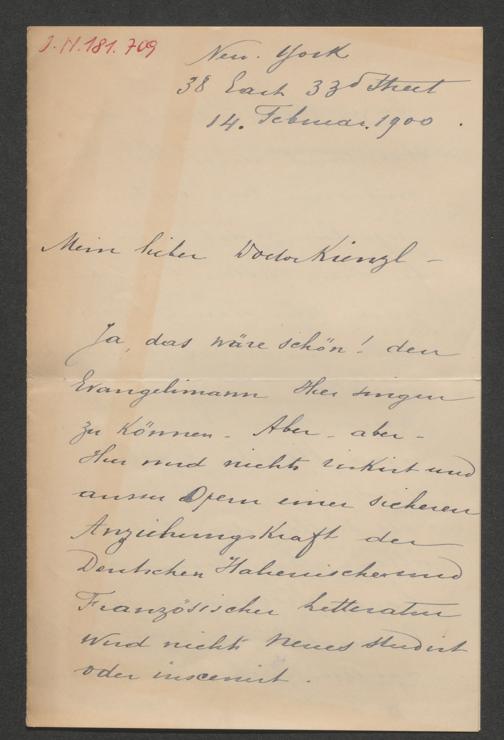 J.N. 181.709
New-York
38 East 33d Street
14. Februar. 1900.
Mein lieber Doctor Kienzl -
Ja, das wäre schön! den
Evangelimann Hier singen
zu Können - Aber - aber -
Hier wird nichts riskirt und
ausser Opern einer sicheren
Anziehungskraft der
Deutschen Italienischen und
Französischer Litteratur
wird nichts Neues studirt
oder inscenirt.